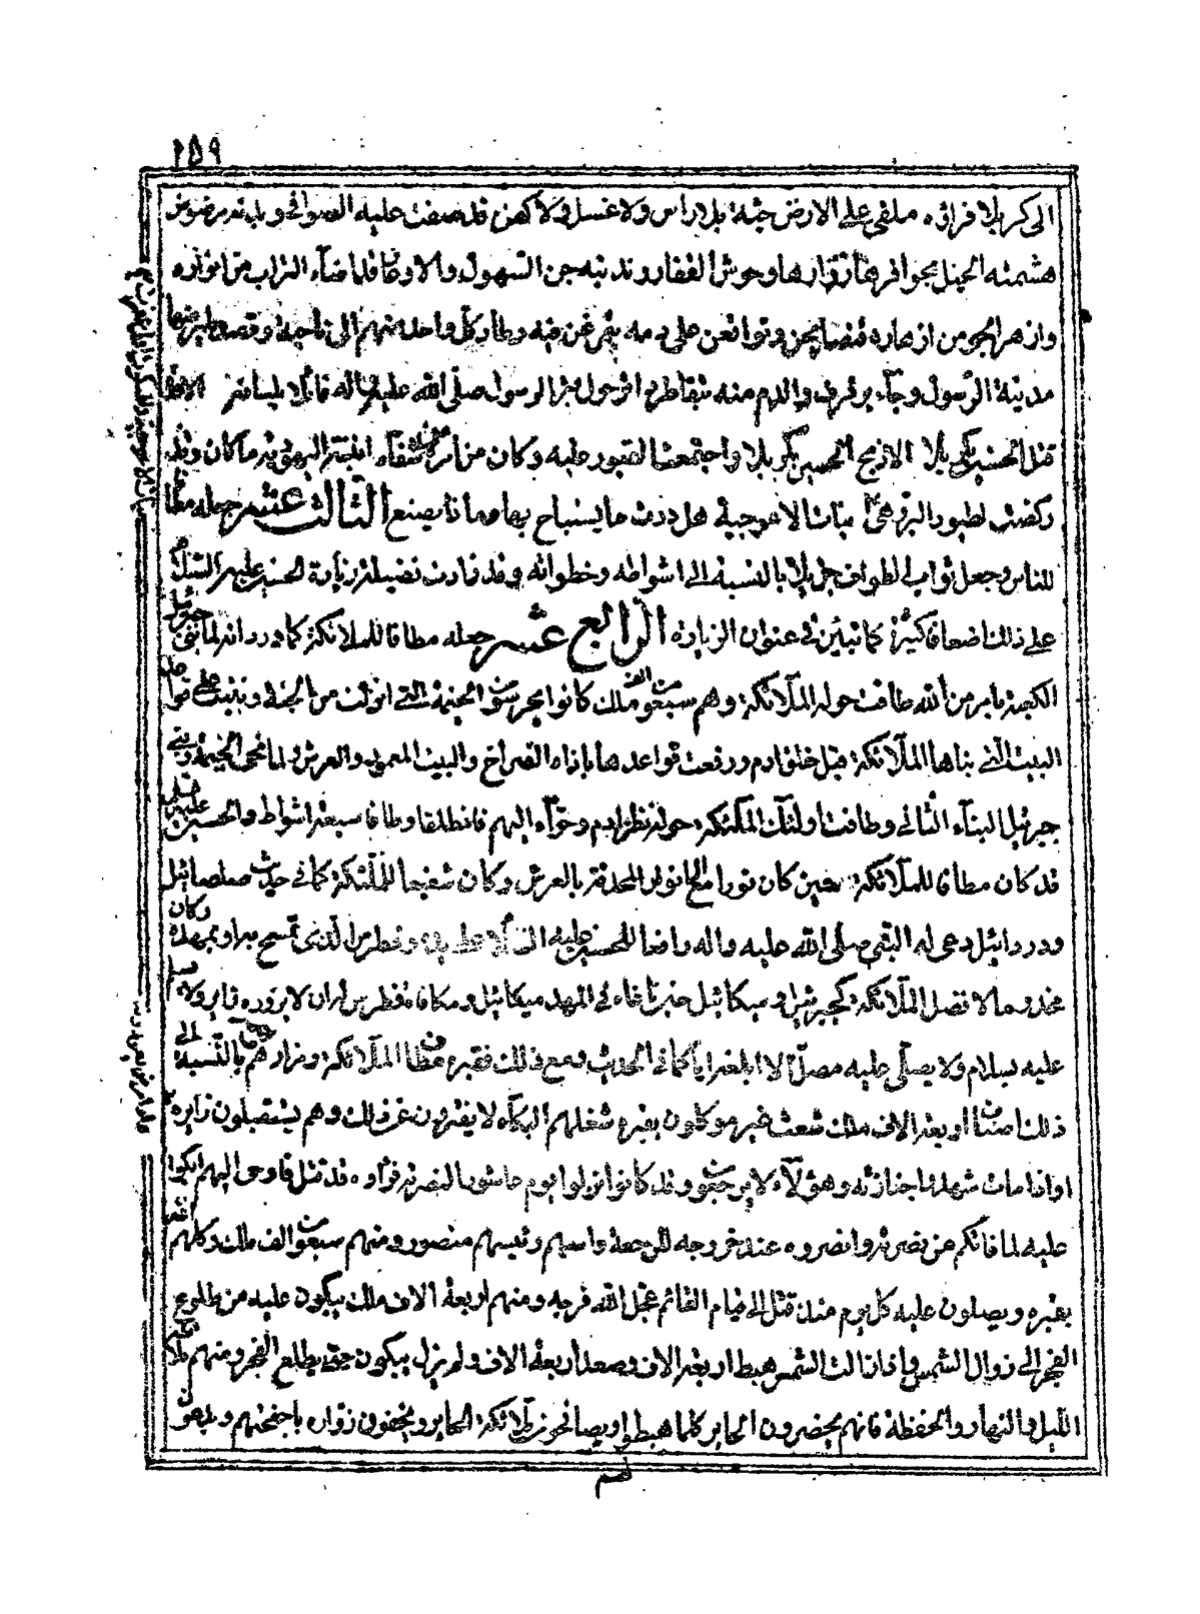 ٢٥٩
الى كربلا فراؤه ملقى على الارض جثة بلا راس ولا غسل ولا كفن قد سفت عليه السوافي وبدنه مرضوض
هشمته الخيل بحوافرها زوارها وحوش القفار وندبته جن السهول والاوعار قد اضاء التراب من انواره
وازهر الجو من ازهاره فتصايحن وتواقعن على دمه يتمرغن فيه وطار كل واحد منهم الى ناحية وقصد طير منها
مدينة الرسول وجاء يرفرف والدم منه يتقاطر ودار حول قبر الرسول صلى الله عليه واله قائلا بلسانه الا قد
قتل الحسين بكربلا الا ذبح الحسين بكربلا واجتمعت الطيور عليه وكان من امره شفاء ابنة اليهودي ما كان وقد
ركضت لطيور البر هي بنات الاعوجية هل درت ما يستباح بها وماذا يصنع الثالث عشر جعله مطافا
للناس وجعل ثواب الطواف جزيلا بالنسبة الى اشواطه وخطواته وقد زادت فضيلة زيارة الحسين عليه السلام
على ذلك اضعافا كثيرة كما تبين في عنوان الزيارة الرابع عشر جعله مطافا للملائكة كما ورد انه لما بنى جبرئيل
الكعبة بامر من الله طافت حوله الملائكة وهم سبعون الف ملك كانوا يحرسون الخيمة التي انزلت من الجنة وبنيت على قواعد
البيت التي بناها الملائكة قبل خلق ادم ورفعت قواعدها بازاء الضراح والبيت المعمور والعرش ولما نحى الخيمة وبنى
جبرئيل البناء الثاني وطافت اولئك الملائكة حوله نظر ادم وحواء اليهم فانطلقا وطافا سبعة اشواط والحسين صلى الله عليه
قد كان مطافا للملائكة حين كان نورا مع الانوار المحدقة بالعرش وكان شفيعا للملائكة كما في حديث صلصائيل
ودردائيل دعى له النبي صلى الله عليه واله رافعا للحسين عليه وفطرس الذي تمسح به او بمهده وكان
مخدوما لافضل الملائكة كجبرئيل وميكائيل حين ناغاه في المهد ميكائيل ومكافاة فطرس له ان لا يزوره زاير ولا يسلم
عليه بسلام ولا يصلي عليه مصل الا ابلغه اياه كما في الحديث ومع ذلك فقبره مطاف الملائكة ومزارهم بالنسبة الى
ذلك اصناف اربعة الاف ملك شعث غبر موكلون بقبره شغلهم البكاء لا يفترون عن ذلك وهم يستقبلون زايره
او اذا مات شهدوا جنازته وهؤلاء لا يرجعون وقد كانوا نزلوا يوم عاشورا لنصرته فراوه قد قتل فاوحى اليهم ابكوا
عليه لما فاتكم من نصرته وانصروه عند خروجه للرجعة واسم رئيسهم منصور ومنهم سبعون الف ملك وكلهم الله
بقبره ويصلون عليه كل يوم منذ قتل الى قيام القائم عجل الله فرجه ومنهم اربعة الاف ملك يبكون عليه من طلوع
الفجر الى زوال الشمس واذا زالت الشمس هبط اربعة الاف وصعد اربعة الاف ولم يزل يبكون حتى يطلع الفجر ومنهم ملائكة
الليل والنهار والحفظة فانهم يحضرون الحاير كلما هبطوا ويصافحون ملائكة الحاير ويحفون زواره باجنحتهم ويدعون
لهم